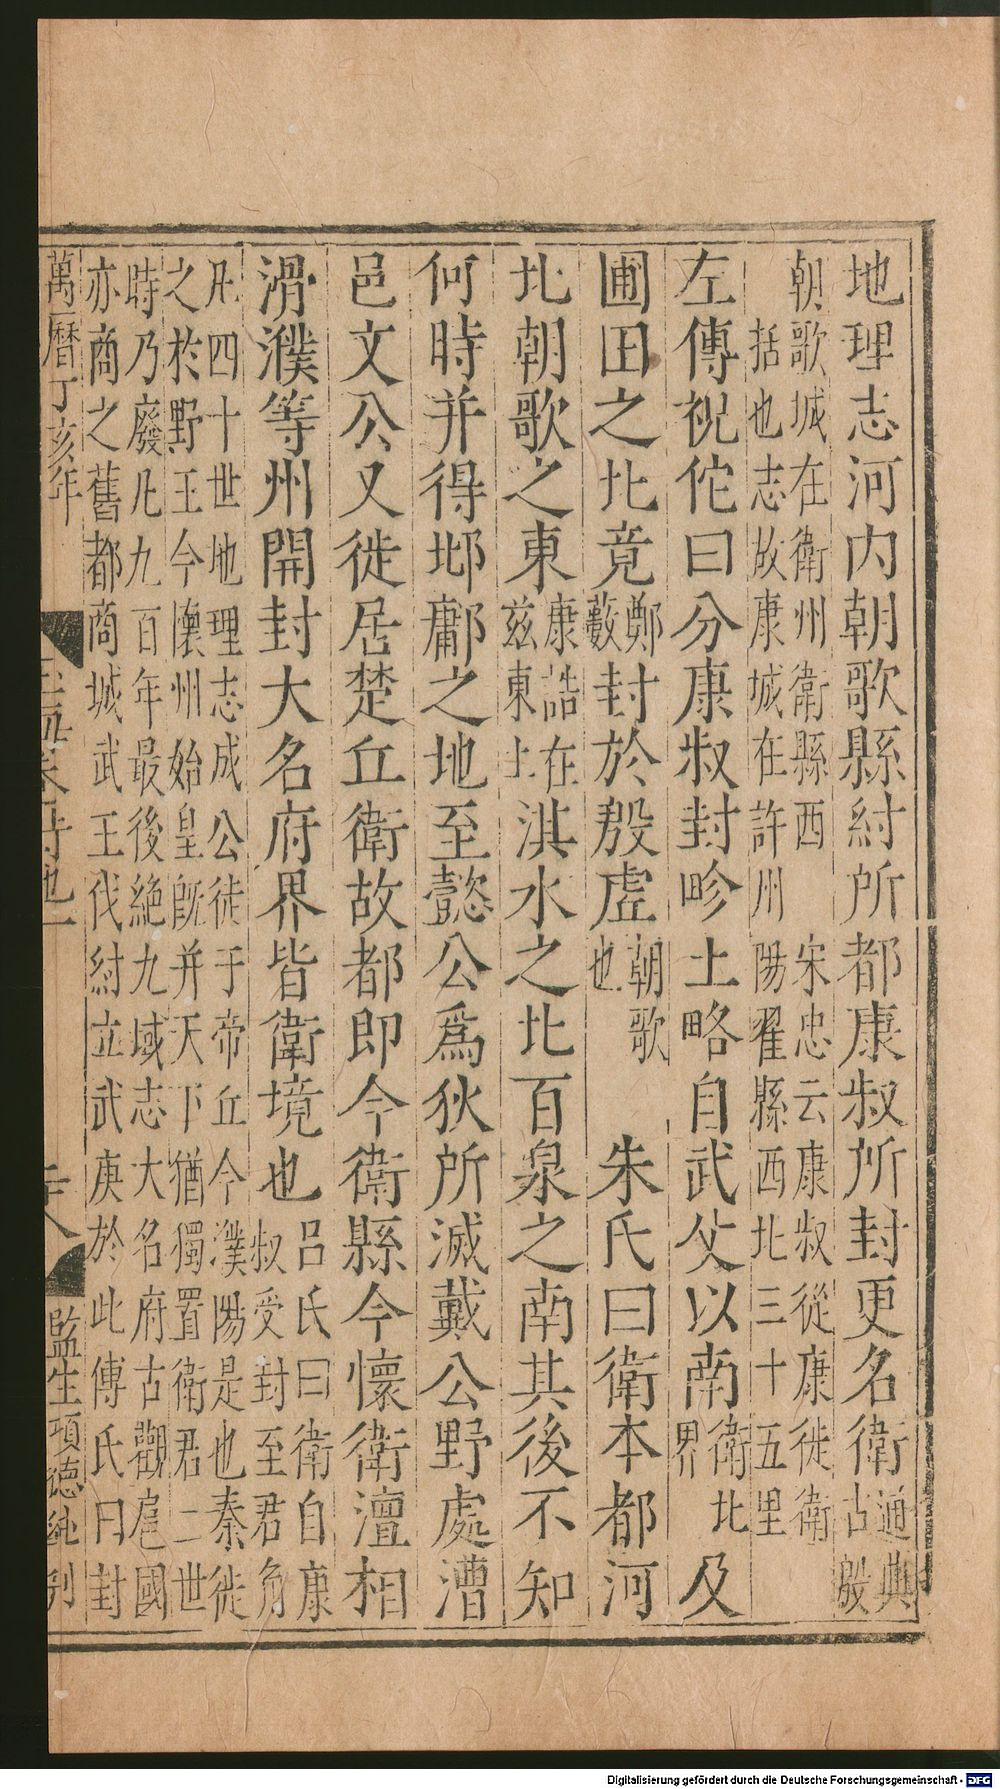 地理志河內朝歌縣紂所都康叔所封更名衛通典古殷
朝歌城在衛州衛縣西　宋忠云康叔從康徙衛
括也志故康城在許州陽翟縣西北三十五里
左傳祝佗曰分康叔封畛土略自武父以南衛北界及
圃田之北竟鄭藪封於殷虛朝歌也　朱氏曰衛本都河
北朝歌之東康誥在茲東土淇水之北百泉之南其後不知
何時并得邶鄘之地至懿公爲狄所滅戴公野處漕
邑文公又徙居楚丘衛故都即今衛縣今懷衛澶相
滑濮等州開封大名府界皆衛境也呂氏曰衛自康叔受封至君角
凡四十世地理志成公徙于帝丘今濮陽是也秦徙
之於野王今懷州始皇既并天下猶獨置衛君二世
時乃廢凡九百年最後絕九域志大名府古觀扈國
亦商之舊都商城武王伐紂立武庚於此傳氏曰封
萬曆丁亥年
詩地一
二十八
監生項德純刋
Digitalisierung gefördert durch die Deutsche Forschungsgemeinschaft - DFG